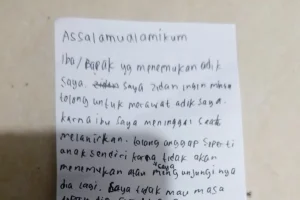 Assalamualamikum
Ibu/Bapak yg menemukan adik
saya. saya Zidan ingin minta
tolong untuk merawat adik saya.
karna ibu saya meninggal
melahirkan. tolong anggap seperti
anak sendiri karna tidak akan
menemukan atau mengunjungi nya
saya
dia lagi. Saya tidak mau masa